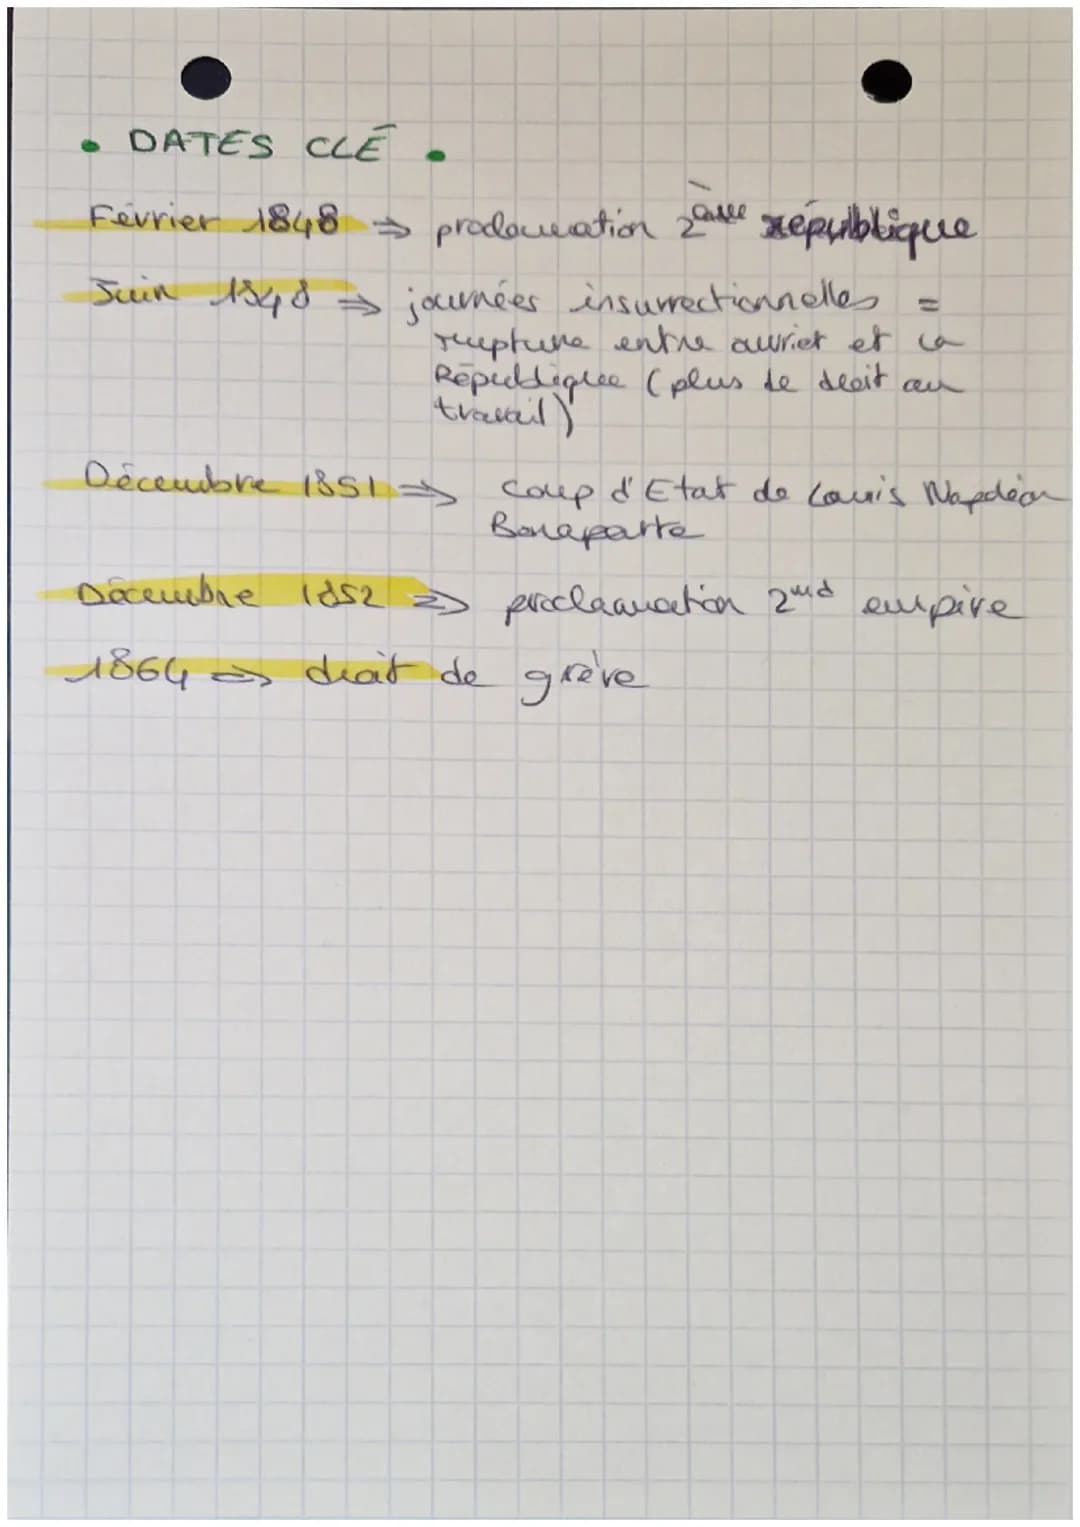 • DATES CLÉ •
Février 1848 ⇒ proclamation 2ème république
Juin 1848 ⇒ journées insurrectionnelles =
rupture entre ouvrier et la
République (plus de droit au
travail)
Décembre 1851 ⇒ Coup d'Etat de Louis Napoléon
Bonaparte
Décembre 1852 ⇒ proclamation 2nd empire
1864 ⇒ droit de grève